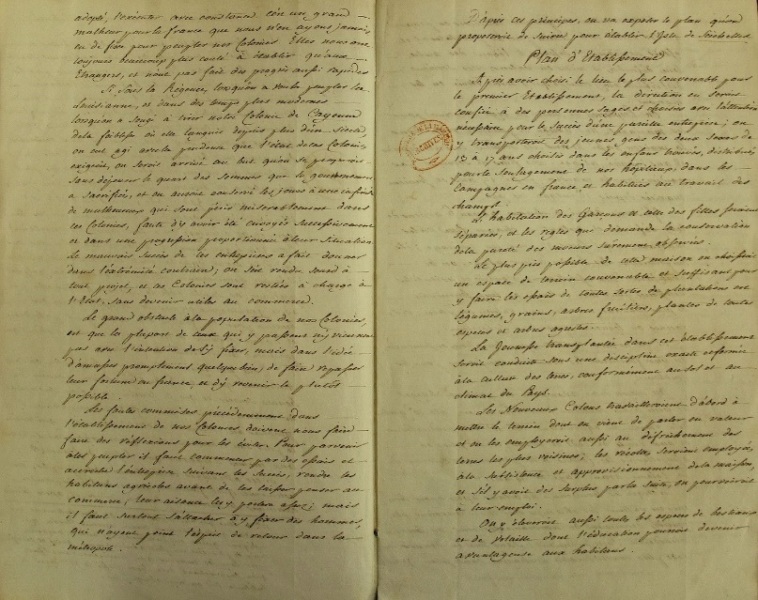 adopté, l'exécuter avec constance c'est un grand
malheur pour la france que nous n'en ayons jamais
eu de fixe pour peupler nos Colonies. Elles nous ont
toujours beaucoup plus couté à établir qu'aux
Etrangers, et n'ont pas fait des progrès aussi rapides
Si sous la Régence, lorsqu'on a voulu peupler la
Louisianne, et dans des temps plus modernes
lorsqu'on a songé à tirer notre Colonie de Cayenne
de la faiblesse où elle languit depuis plus d'un Siecle,
on eut agi avec la prudence que l'état de ces Colonies
exigeoit, on seroit arrivé au but qu'on se proposoit
sans déjouer le quart des sommes que le gouvernement
a sacrifiés, et on auroit conservé les jours à une infinité
de malheureux qui sont péris misérablement dans
ces Colonies, faute d'y avoir été envoyés successivement
et dans une progression proportionnée à leur situation
Le mauvais succès de ces entreprises a fait donner
dans l'extrémité contraire; on s'est rendu sourd à
tout projet, et ces Colonies sont restées à charge à
l'Etat, sans devenir utiles au commerce.
Le grand obstacle à la population de nos Colonies,
est que la plupart de ceux qui y passent n'y viennent
pas avec l'intention de s'y fixer, mais dans l'idée
d'amasser promptement quelque bien, de faire repasser
leur fortune en france, et d'y revenir le plutôt
possible.
Les fautes commises précédemment dans
l'établissement de nos Colonies, doivent nous faire
faire des réflexions pour les éviter. Pour parvenir
à les peupler il faut commencer par des essais et
accroître l'entreprise suivant les succès, rendre les
habitans agricoles avant de les laisser penser au
commerce; leur aisance les y portera assez; mais
il faut surtout s'attacher à y fixer des hommes,
qui n'ayent point l'esprit de retour dans la
métropole.
D'après ces principes, on va exposer le plan qu'on
proposeroit de suivre pour établir l'Isle de Séchelles
Plan d'Etablissement
Après avoir choisi le lieu le plus convenable pour
le premier Etablissement, la direction en seroit
confiée à des personnes sages et choisies avec l'attention
nécessaire pour le succès d'une pareille entreprise; on
y transporteroit des jeunes gens des deux sexes de
15 à 17 ans choisis dans les enfans trouvés, distribués
pour le soulagement de nos hôpitaux, dans les
Campagnes en france, et habitués au travail des
champs.
L'habitation des Garçons et celle des filles seroient
séparées, et les regles que demande la conservation
de la pureté des moeurs sûrement observées.
Le plus près possible de cette maison on choisiroit
un espace de terrein convenable et suffisant pour
y faire les essais de toutes sortes de plantations en
légumes, grains, arbres fruitiers, plantes de toutes
especes et arbres agrestes.
La Jeunesse transplantée dans cet établissement
seroit conduite sous une discipline exacte
à la culture des terres, conformément au sol et au
climat du Pays.
Les Nouveaux Colons travailleroient d'abord à
mettre le terrein dont on vient de parler en valeur
et on les employeroit aussi au défrichement des
terres les plus voisines; les récoltes seroient employées
à la subsistance et approvisionnement de la maison,
et s'il y avoit des surplus par la suite, on pourvoiroit
à leur emploi.
On y éleveroit aussi toutes les especes de bestiaux
et de volaille dont l'éducation pourroit devenir
avantageuse aux habitans.